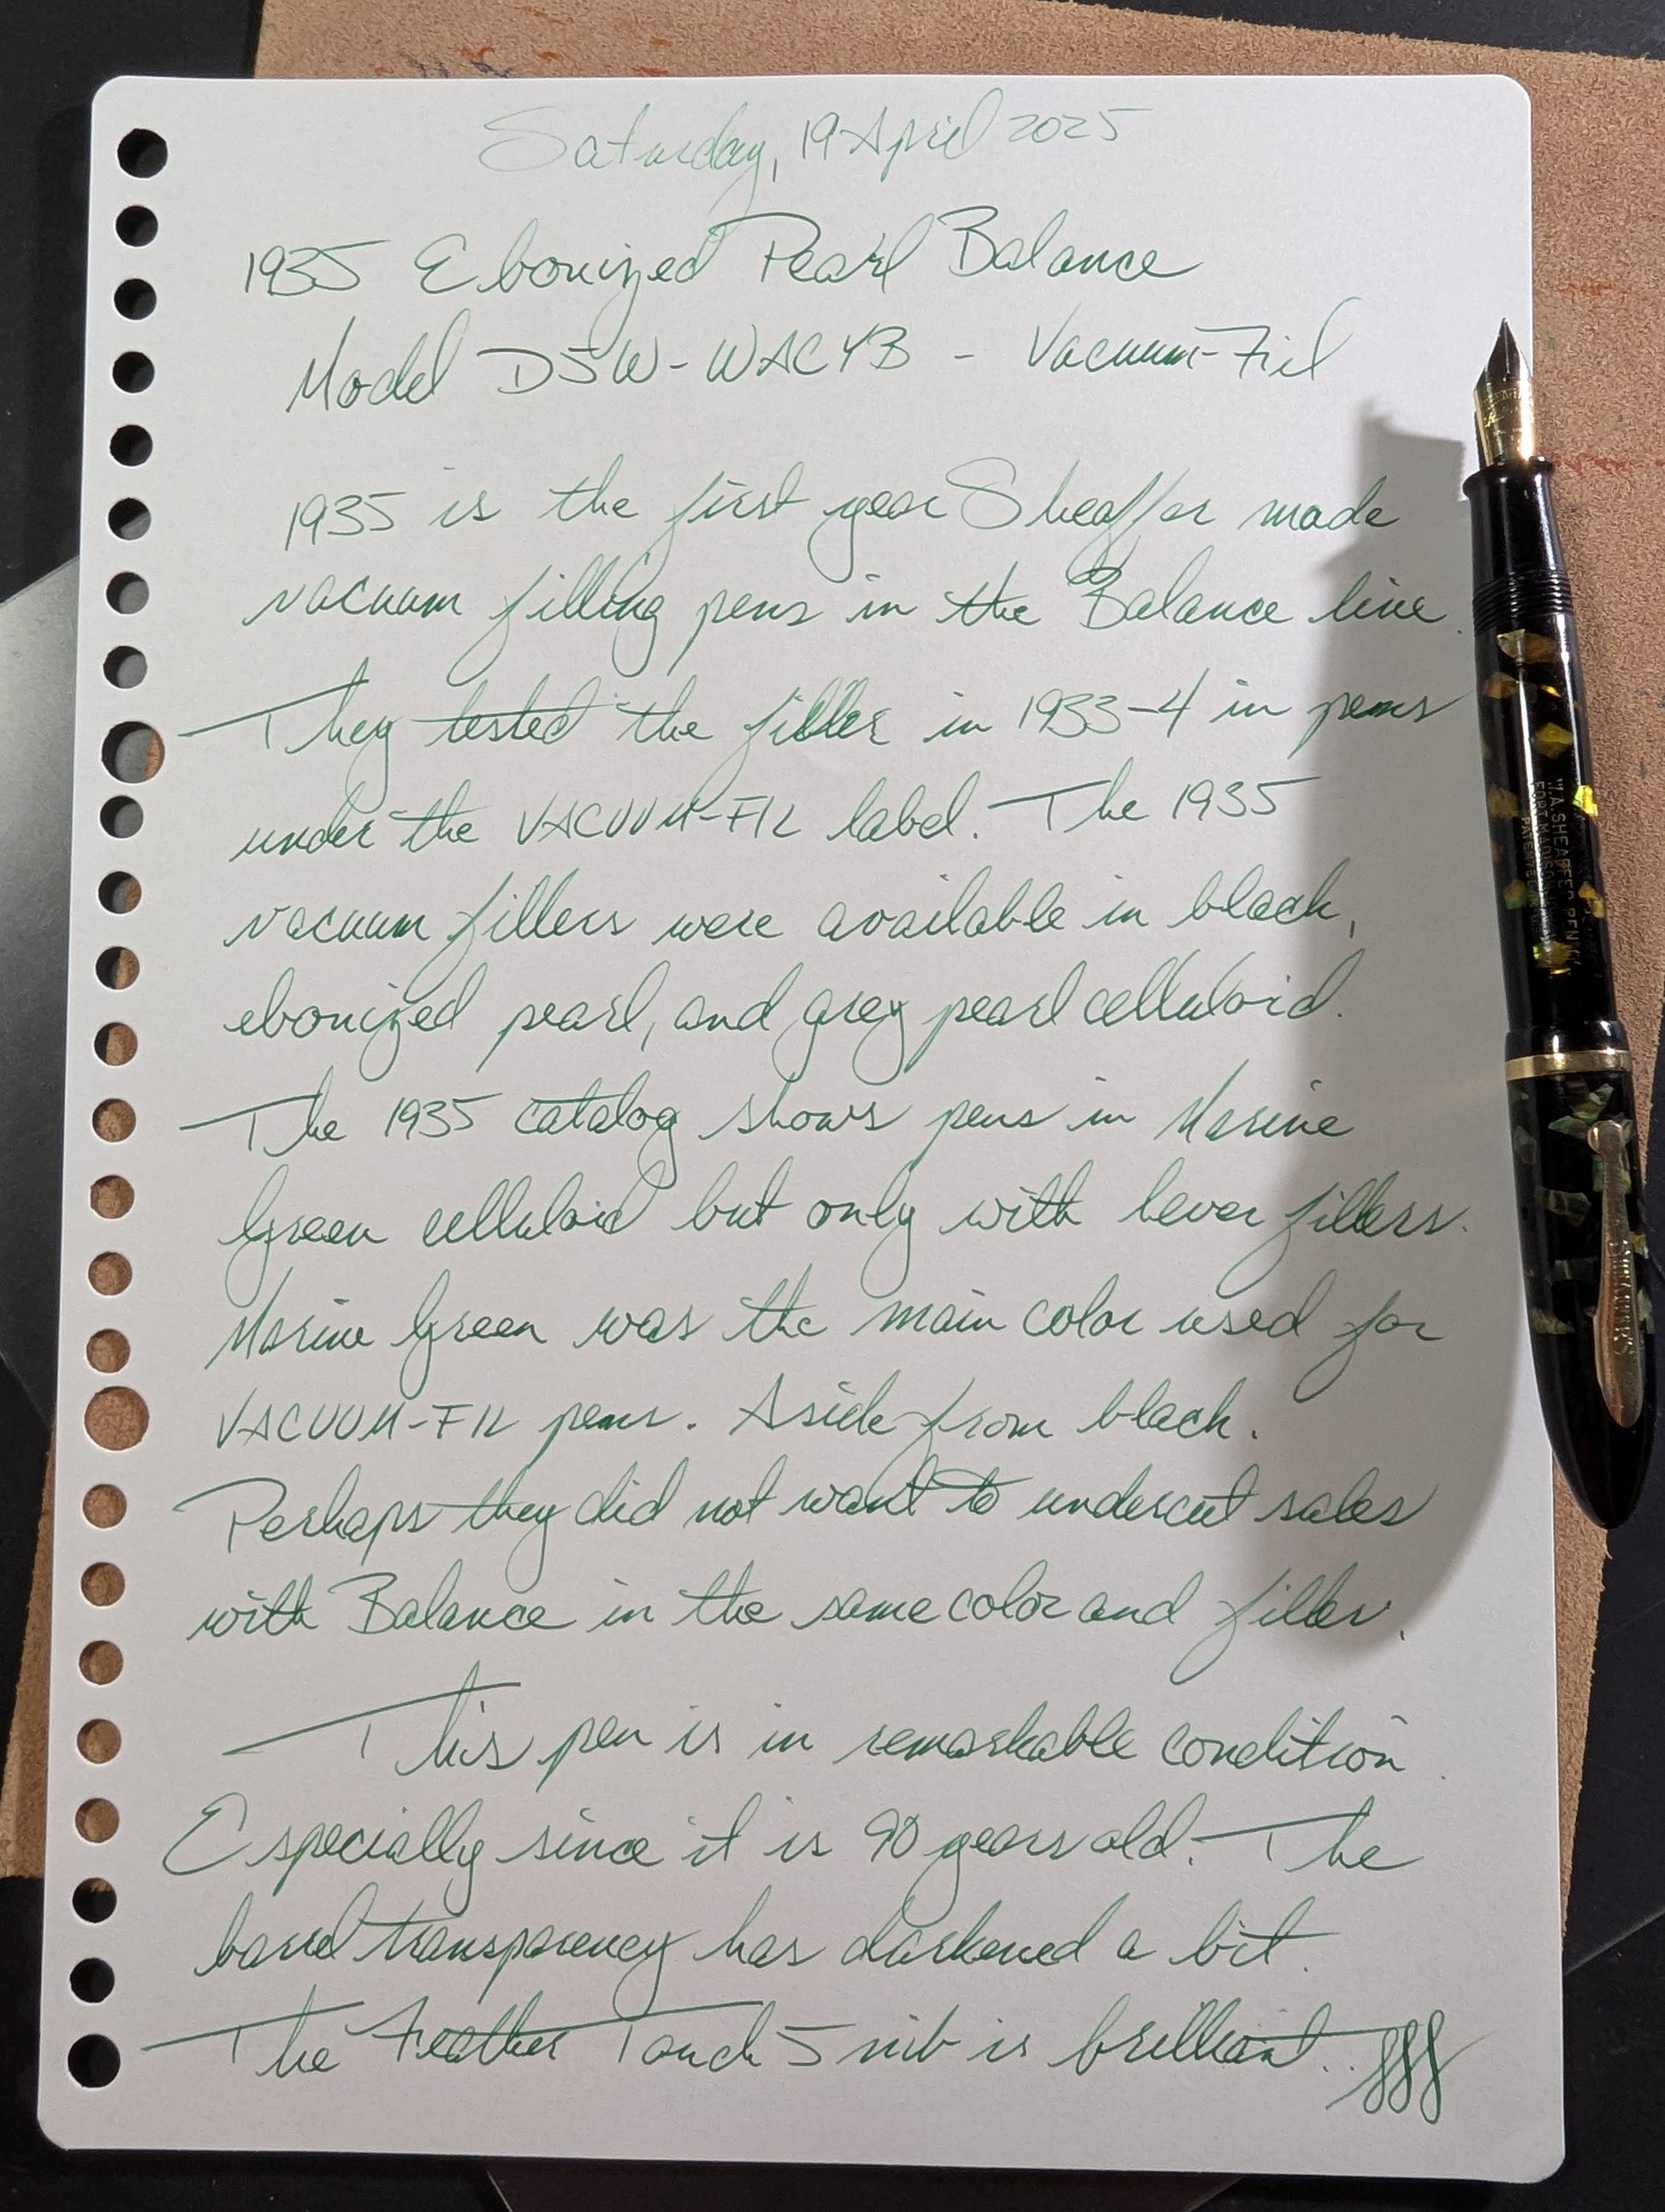 Saturday, 19 April 2025
1935 Ebonized Pearl Balance
Model D5W-WACYB - Vacuum-Fil
1935 is the first year Sheaffer made
vacuum filling pens in the Balance line.
They tested the filler in 1933-4 in pens
under the VACUUM-FIL label. The 1935
vacuum fillers were available in black,
ebonized pearl, and grey pearl celluloid.
The 1935 catalog shows pens in Marine
Green celluloid but only with lever fillers.
Marine Green was the main color used for
VACUUM-FIL pens. Aside from black.
Perhaps they did not want to undercut sales
with Balance in the same color and filler.
This pen is in remarkable condition.
Especially since it is 90 years old. The
barrel transparency has darkened a bit.
The Feather Touch 5 nib is brilliant.
W.A. SHEAFFER PEN CO.
FORT MADISON
SHEAFFER'S